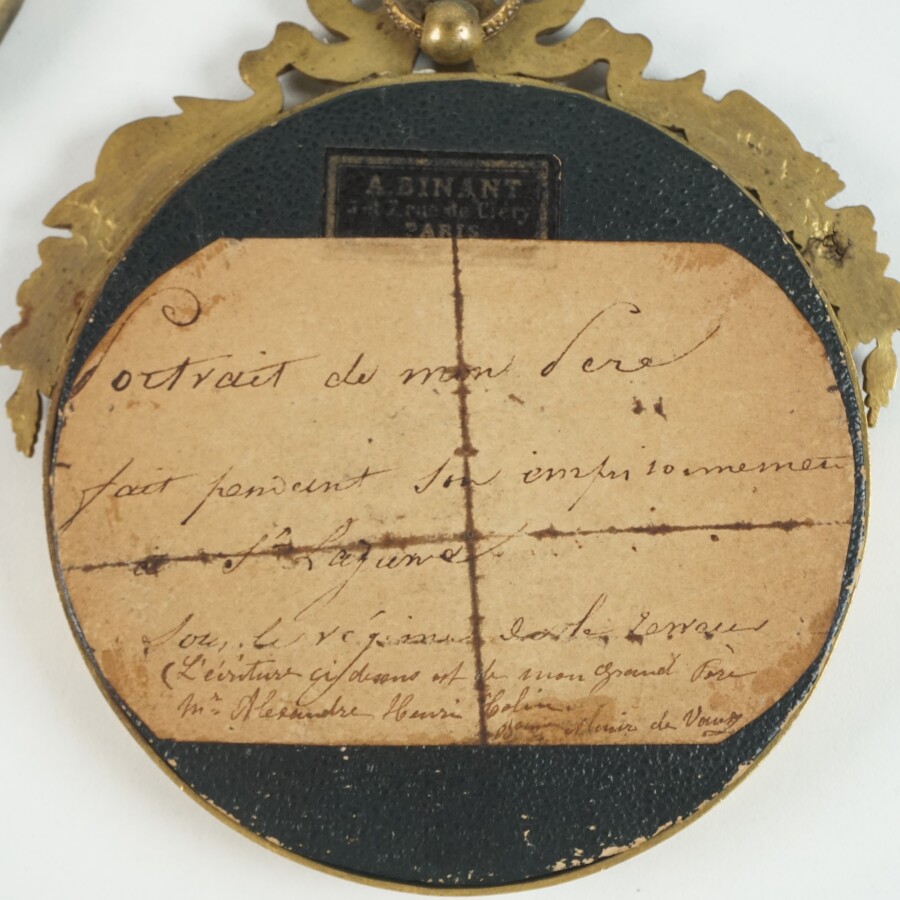 A. BINANT
5 & 7, rue de Cléry
PARIS
Portrait de mon Pere
fait pendant son emprisonnement
a St Lazare
sous le régime de la terreur
(L'écriture ci dessus est de mon Grand Père
Mr Alexandre Henri
de